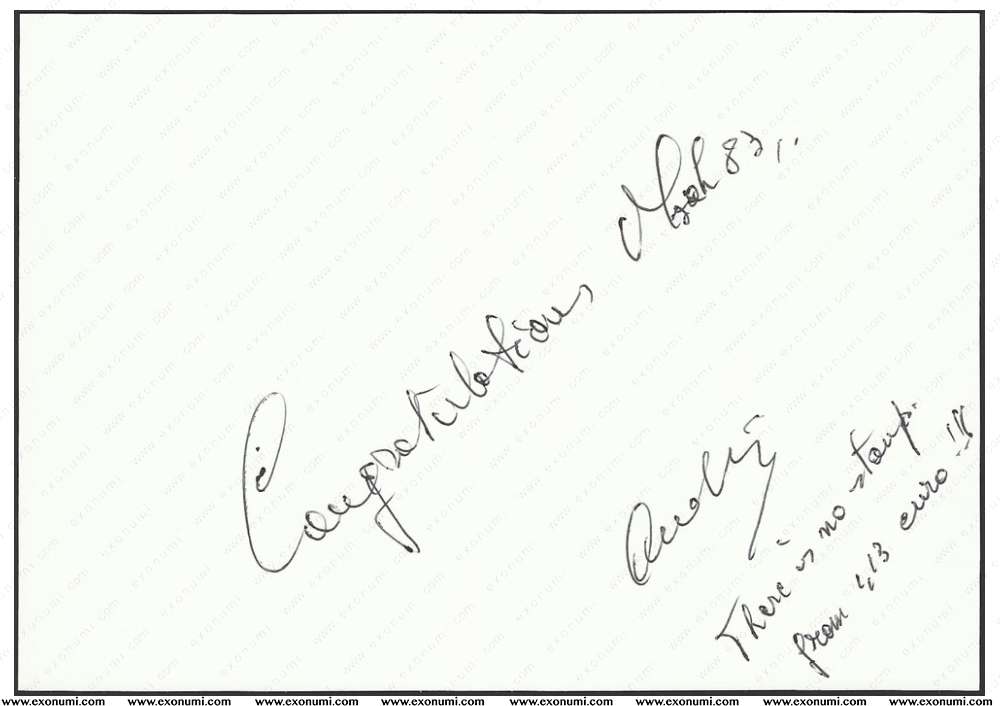 Congratulations Msah 83,,
There is no stamp
from 4,13 euro!!!
www.exonumi.com www.exonumi.com www.exonumi.com www.exonumi.com www.exonumi.com www.exonumi.com www.exonumi.com www.exonumi.com